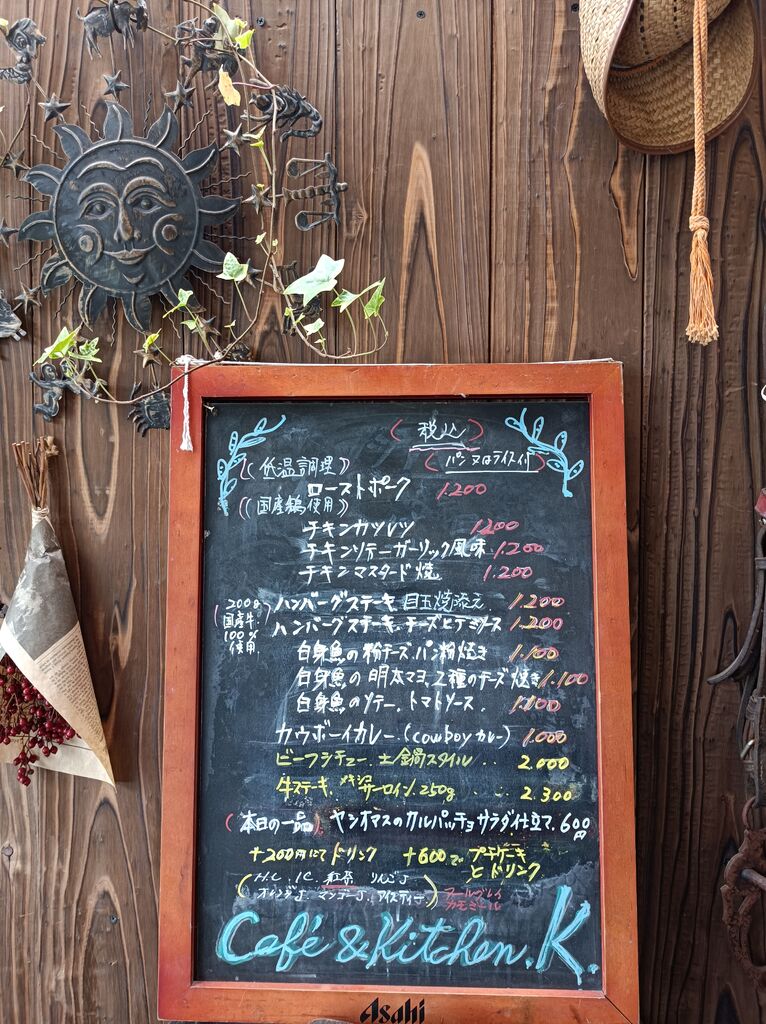 (税込)
(パン又はライス付)
((低温調理))
ローストポーク 1.200
((国産鶏使用))
チキンカツレツ 1.200
チキンソテーガーリック風味 1.200
チキンマスタード焼 1.200
200g
国産牛
100%
使用
ハンバーグステーキ 目玉焼添え 1.200
ハンバーグステーキ チーズとデミソース 1.200
白身魚の粉チーズ.パン粉焼き 1.100
白身魚の明太マヨ.2種のチーズ焼き 1.100
白身魚のソテー.トマトソース. 1.100
カウボーイカレー.(cowboyカレー) 1.000
ビーフシチュー.土鍋スタイル .. 2.000
牛ステーキ.メキシコサーロイン.250g .. 2.300
(本日の一品) ヤシオマスのカルパッチョサラダ仕立て.600円
+200円にてドリンク +600で プチケーキとドリンク
(H.C. I.C. 紅茶 りんごJ
オレンジJ マンゴーJ. アイスティー.) アールグレイ
カモミール
Café & Kitchen.K.
Asahi